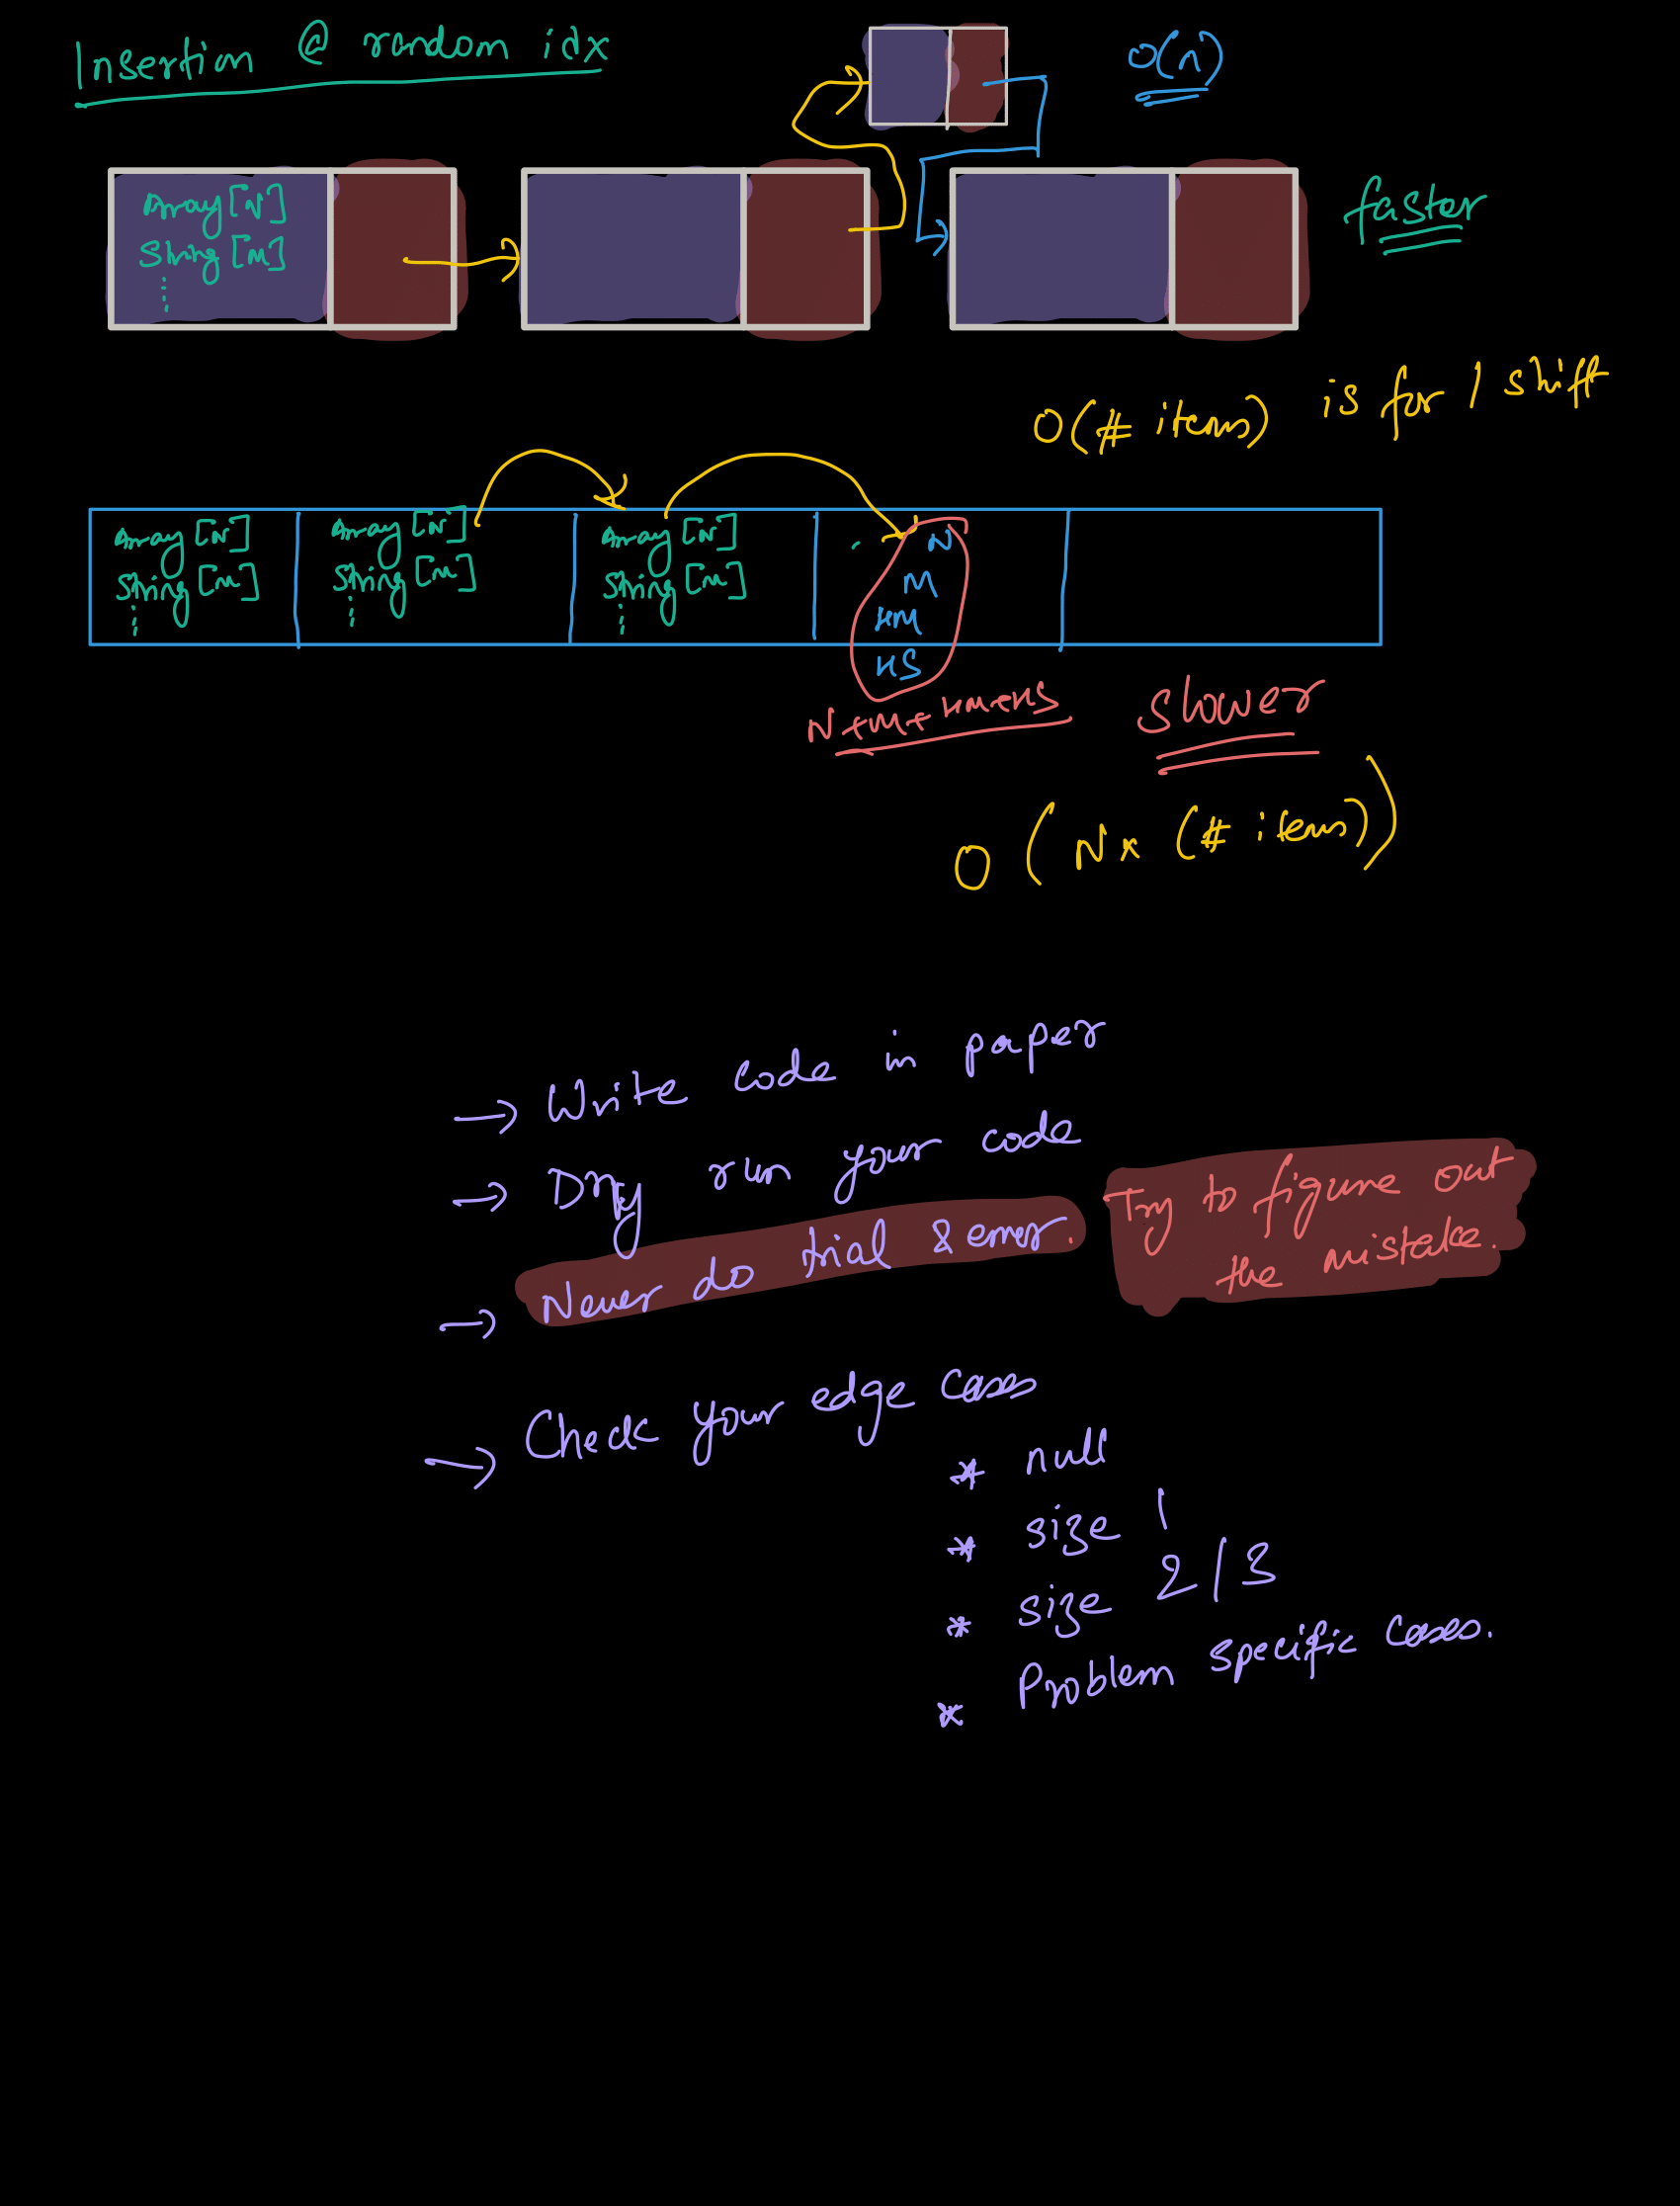 Insertion @ random idx
O(n)
Array [N]
String [M]
⋮
faster
O(# items) is for 1 shift
Array [N] Array [N] Array [N] N
String [M] String [M] String [M] M
⋮ ⋮ ⋮ HM
HS
N+M+HM+HS
slower
O(N x (# items))
→ Write code in paper
→ Dry run your code
→ Never do trial & error. Try to figure out
the mistake.
→ Check your edge cases
* null
* size 1
* size 2/3
* Problem specific cases.